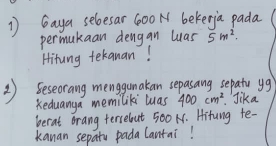 1) Gaya sebesar 600 N bekerja pada
permukaan dengan luas 5 m².
Hitung tekanan !
2) Seseorang menggunakan sepasang sepatu yg
keduanya memiliki luas 400 cm². Jika
berat orang tersebut 500 N. Hitung te-
kanan sepatu pada lantai !